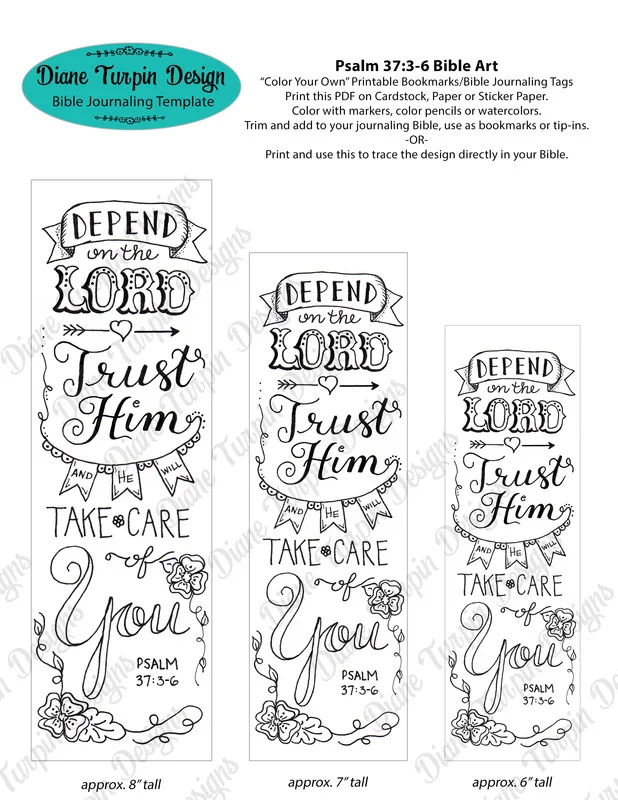 Diane Turpin Design
Bible Journaling Template
Psalm 37:3-6 Bible Art
“Color Your Own” Printable Bookmarks/Bible Journaling Tags
Print this PDF on Cardstock, Paper or Sticker Paper.
Color with markers, color pencils or watercolors.
Trim and add to your journaling Bible, use as bookmarks or tip-ins.
-OR-
Print and use this to trace the design directly in your Bible.
DEPEND
on the
LORD
Trust
Him
AND HE WILL
TAKE CARE
of
You
PSALM
37:3-6
approx. 8” tall
DEPEND
on the
LORD
Trust
Him
AND HE WILL
TAKE CARE
of
You
PSALM
37:3-6
approx. 7” tall
DEPEND
on the
LORD
Trust
Him
AND HE WILL
TAKE CARE
of
You
PSALM
37:3-6
approx. 6” tall
Diane Turpin Designs